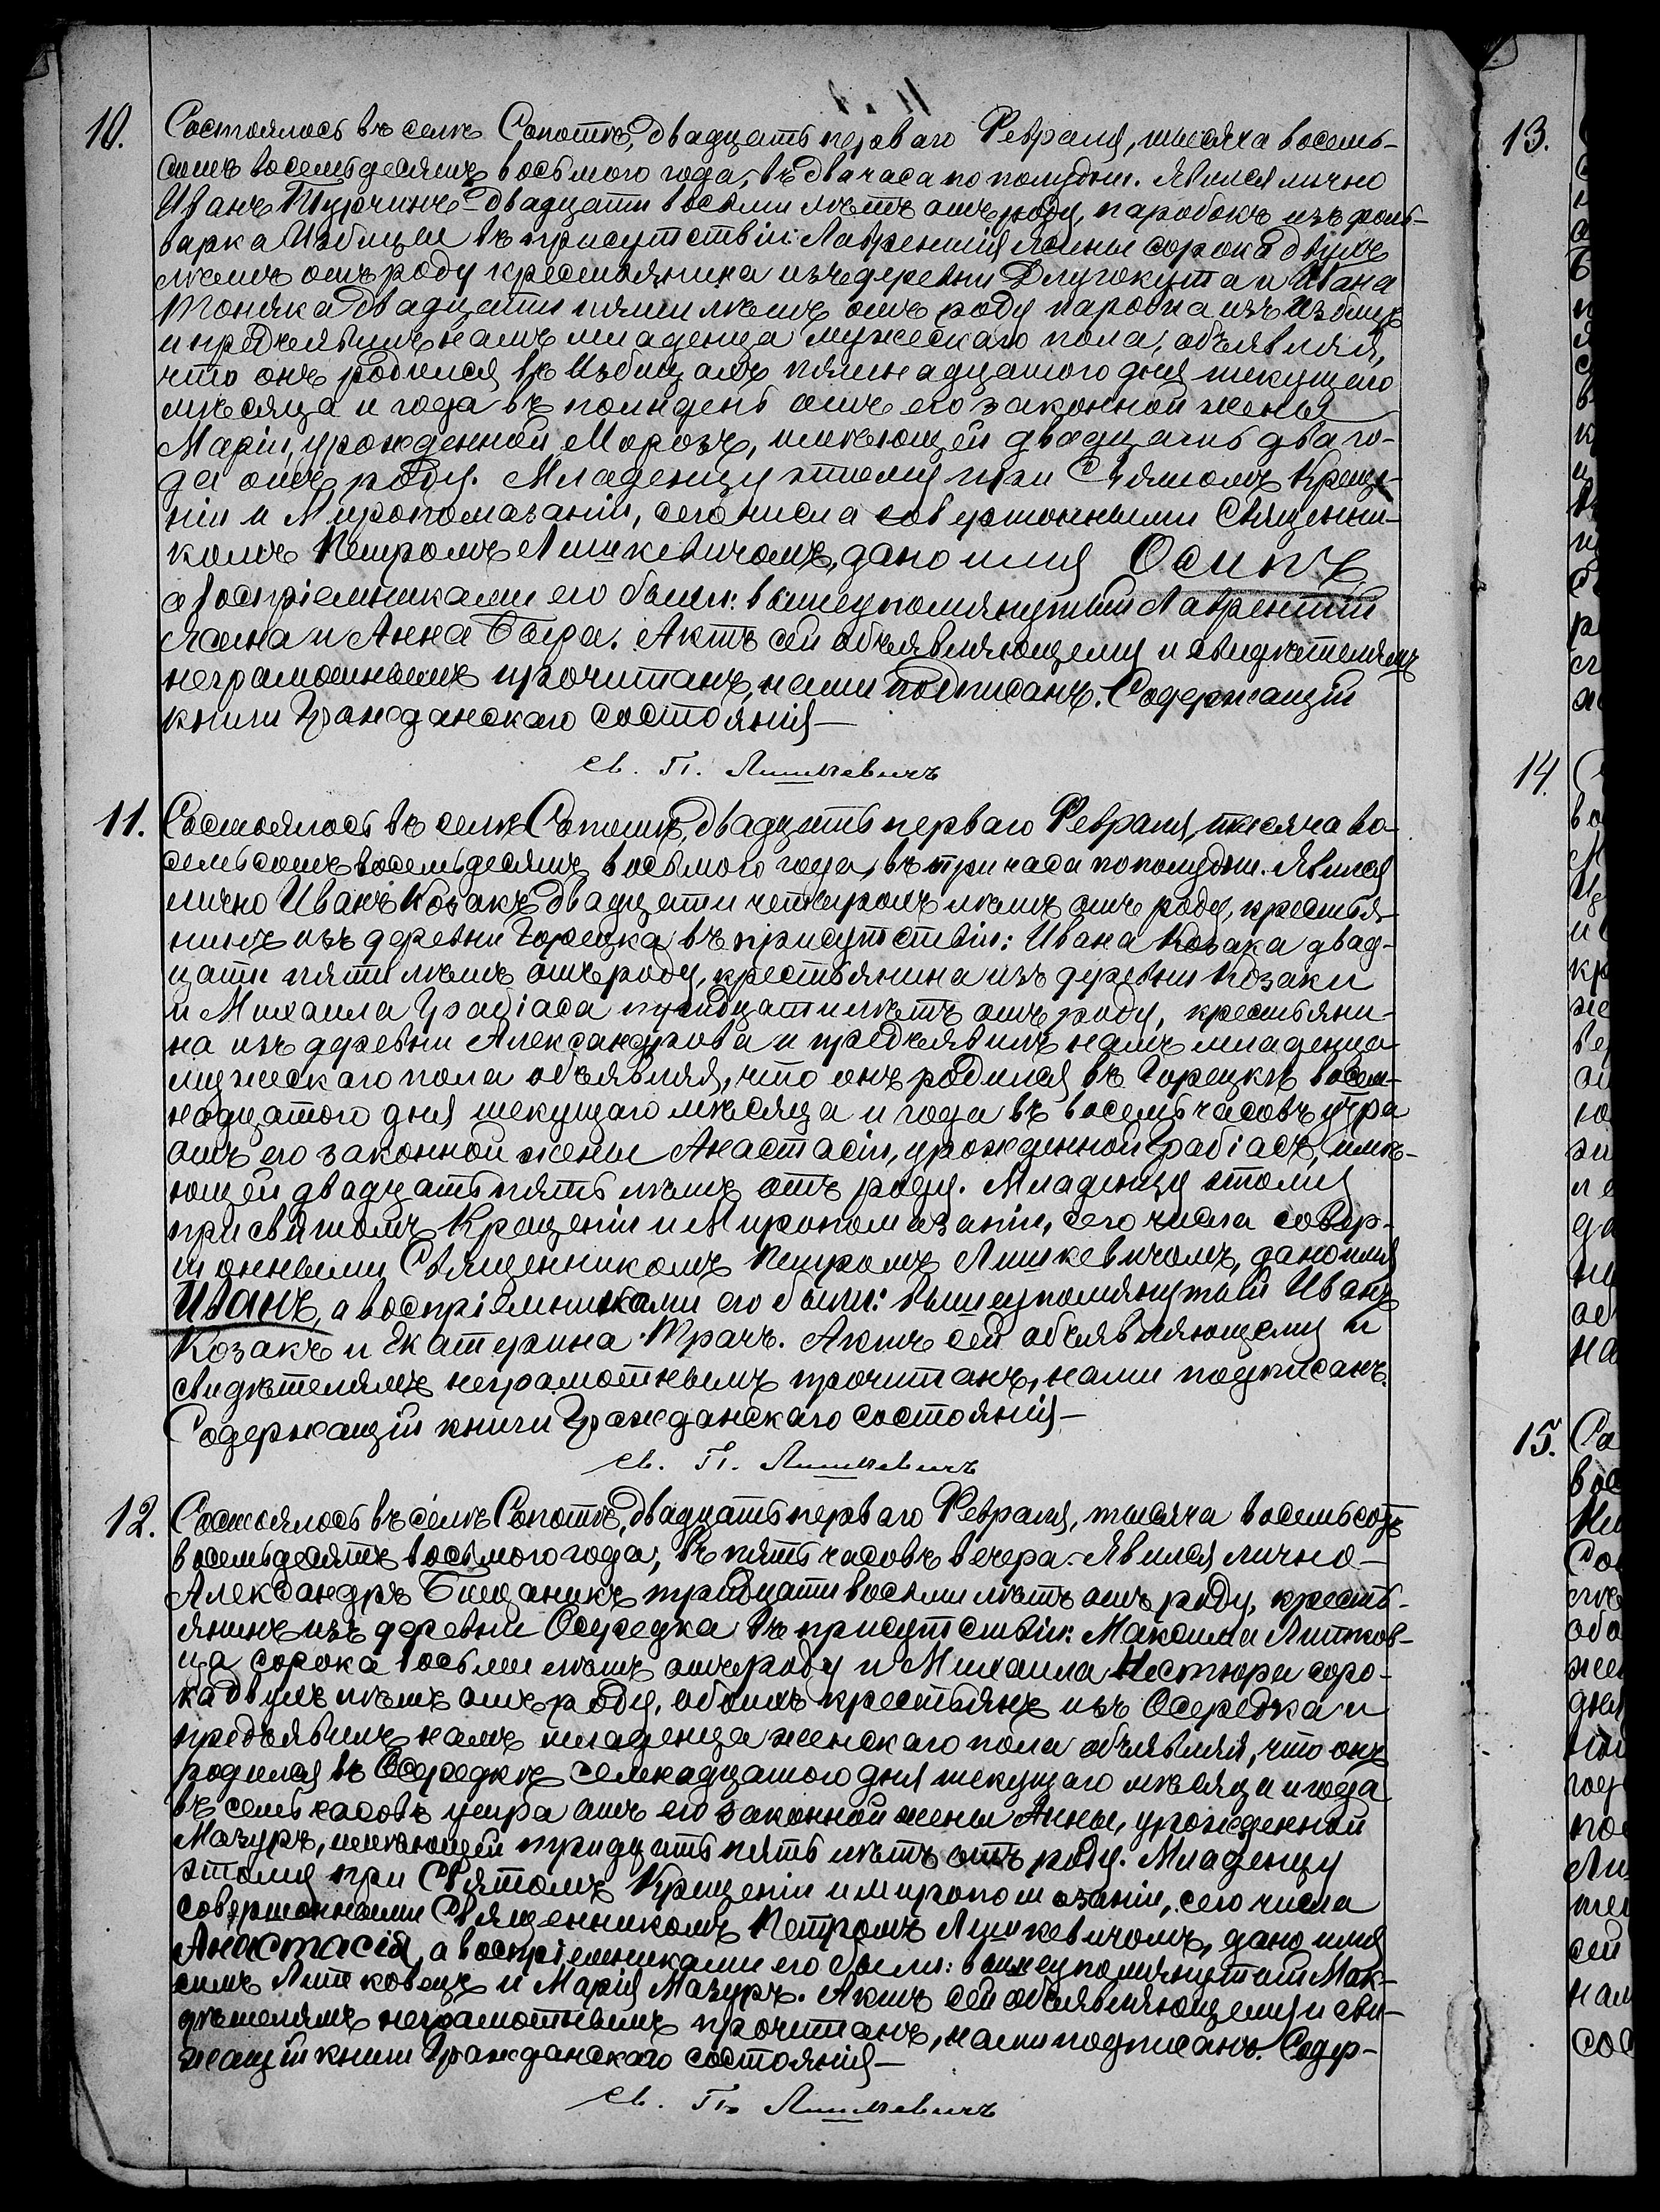 10.
Состоялось въ селѣ Сопотѣ, двадцать перваго Февраля, тысяча восемь-
сотъ восемьдесятъ восьмого года, въ два часа по полудни. Явился лично
Иванъ Турчинъ двадцати восьми лѣтъ отъ роду, паробокъ изъ фоль-
варка Избицы въ присутствіи: Лаврентія Ясины сорока двухъ
лѣтъ отъ роду крестьянина изъ деревни Длугокута и Ивана
Тоняка двадцати пяти лѣтъ отъ роду паробка изъ Избицъ
и предъявилъ намъ младенца мужескаго пола, объявляя,
что онъ родился въ Избицахъ пятнадцатого дня текущаго
мѣсяца и года въ полъдень отъ его законной жены
Маріи, урожденной Морозъ, имѣющей двадцать два го-
да отъ роду. Младенцу этому при Святомъ Креще-
ніи и Миропомазаніи, сего числа совершонными Священни-
комъ Петромъ Лишкевичомъ, дано имя Осипъ
а воспріемниками его были: вышеупомянутый Лаврентій
Ясина и Анна Быра. Актъ сей объявляющему и свидѣтелямъ
неграмотнымъ прочитанъ, нами подписанъ. Содержащій
книги Гражданскаго состоянія—
Св. П. Лишкевичъ
11.
Состоялось въ селѣ Сопотѣ, двадцать перваго Февраля, тысяча во-
семьсотъ восемьдесятъ восьмого года, въ три часа пополудни. Явился
лично Иванъ Козакъ двадцати четыромъ лѣтъ отъ роду, крестья-
нинъ изъ деревни Горецка въ присутствіи: Ивана Козака двад-
цати пяти лѣтъ отъ роду, крестьянина изъ деревни Козаки
и Михаила Грабіаса тридцати лѣтъ отъ роду, крестьяни-
на изъ деревни Александрова и предъявилъ намъ младенца
мужескаго пола объявляя, что онъ родился въ Горецкѣ восем-
надцатого дня текущаго мѣсяца и года въ восемь часовъ утра
отъ его законной жены Анастасіи, урожденной Грабіасъ, имѣ-
ющей двадцать пять лѣтъ отъ роду. Младенцу этому
при святомъ Крещеніи и Миропомазаніи, сего числа совер-
шонными Священникомъ Петромъ Лишкевичомъ, дано имя
Иванъ, а воспріемниками его были: вышеупомянутый Иванъ
Козакъ и Екатерина Трачъ. Актъ сей объявляющему и
свидѣтелямъ неграмотнымъ прочитанъ, нами подписанъ.
Содержащій книги Гражданскаго состоянія—
Св. П. Лишкевичъ
12.
Состоялось въ селѣ Сопотѣ, двадцать перваго Февраля, тысяча восемьсотъ
восемьдесятъ восьмого года, въ пять часовъ вечера. Явился лично—
Александръ Бищаникъ тридцати восьми лѣтъ отъ роду, кресть-
янинъ изъ деревни Осередка въ присутствіи: Максима Литков-
ца сорока восьми лѣтъ отъ роду и Михаила Нестюри соро-
ка двухъ лѣтъ отъ роду, обоихъ крестьянъ изъ Осередка и
предъявилъ намъ младенца женскаго пола объявляя, что онъ
родился въ Осередкѣ семнадцатого дня текущаго мѣсяца и года
въ семь часовъ утра отъ его законной жены Анны, урожденной
Мазуръ, имѣющей тридцать пять лѣтъ отъ роду. Младенцу
этому при Святомъ Крещеніи и миропомазаніи, сего числа
совершонными Священникомъ Петромъ Лишкевичомъ, дано имя
Анастасія, а воспріемниками его были: вышеупомянутый Мак-
симъ Литковецъ и Марія Мазуръ. Актъ сей объявляющему и сви-
дѣтелямъ неграмотнымъ прочитанъ, нами подписанъ. Содер-
жащій книги Гражданскаго состоянія—
Св. П. Лишкевичъ
13.
14.
15.